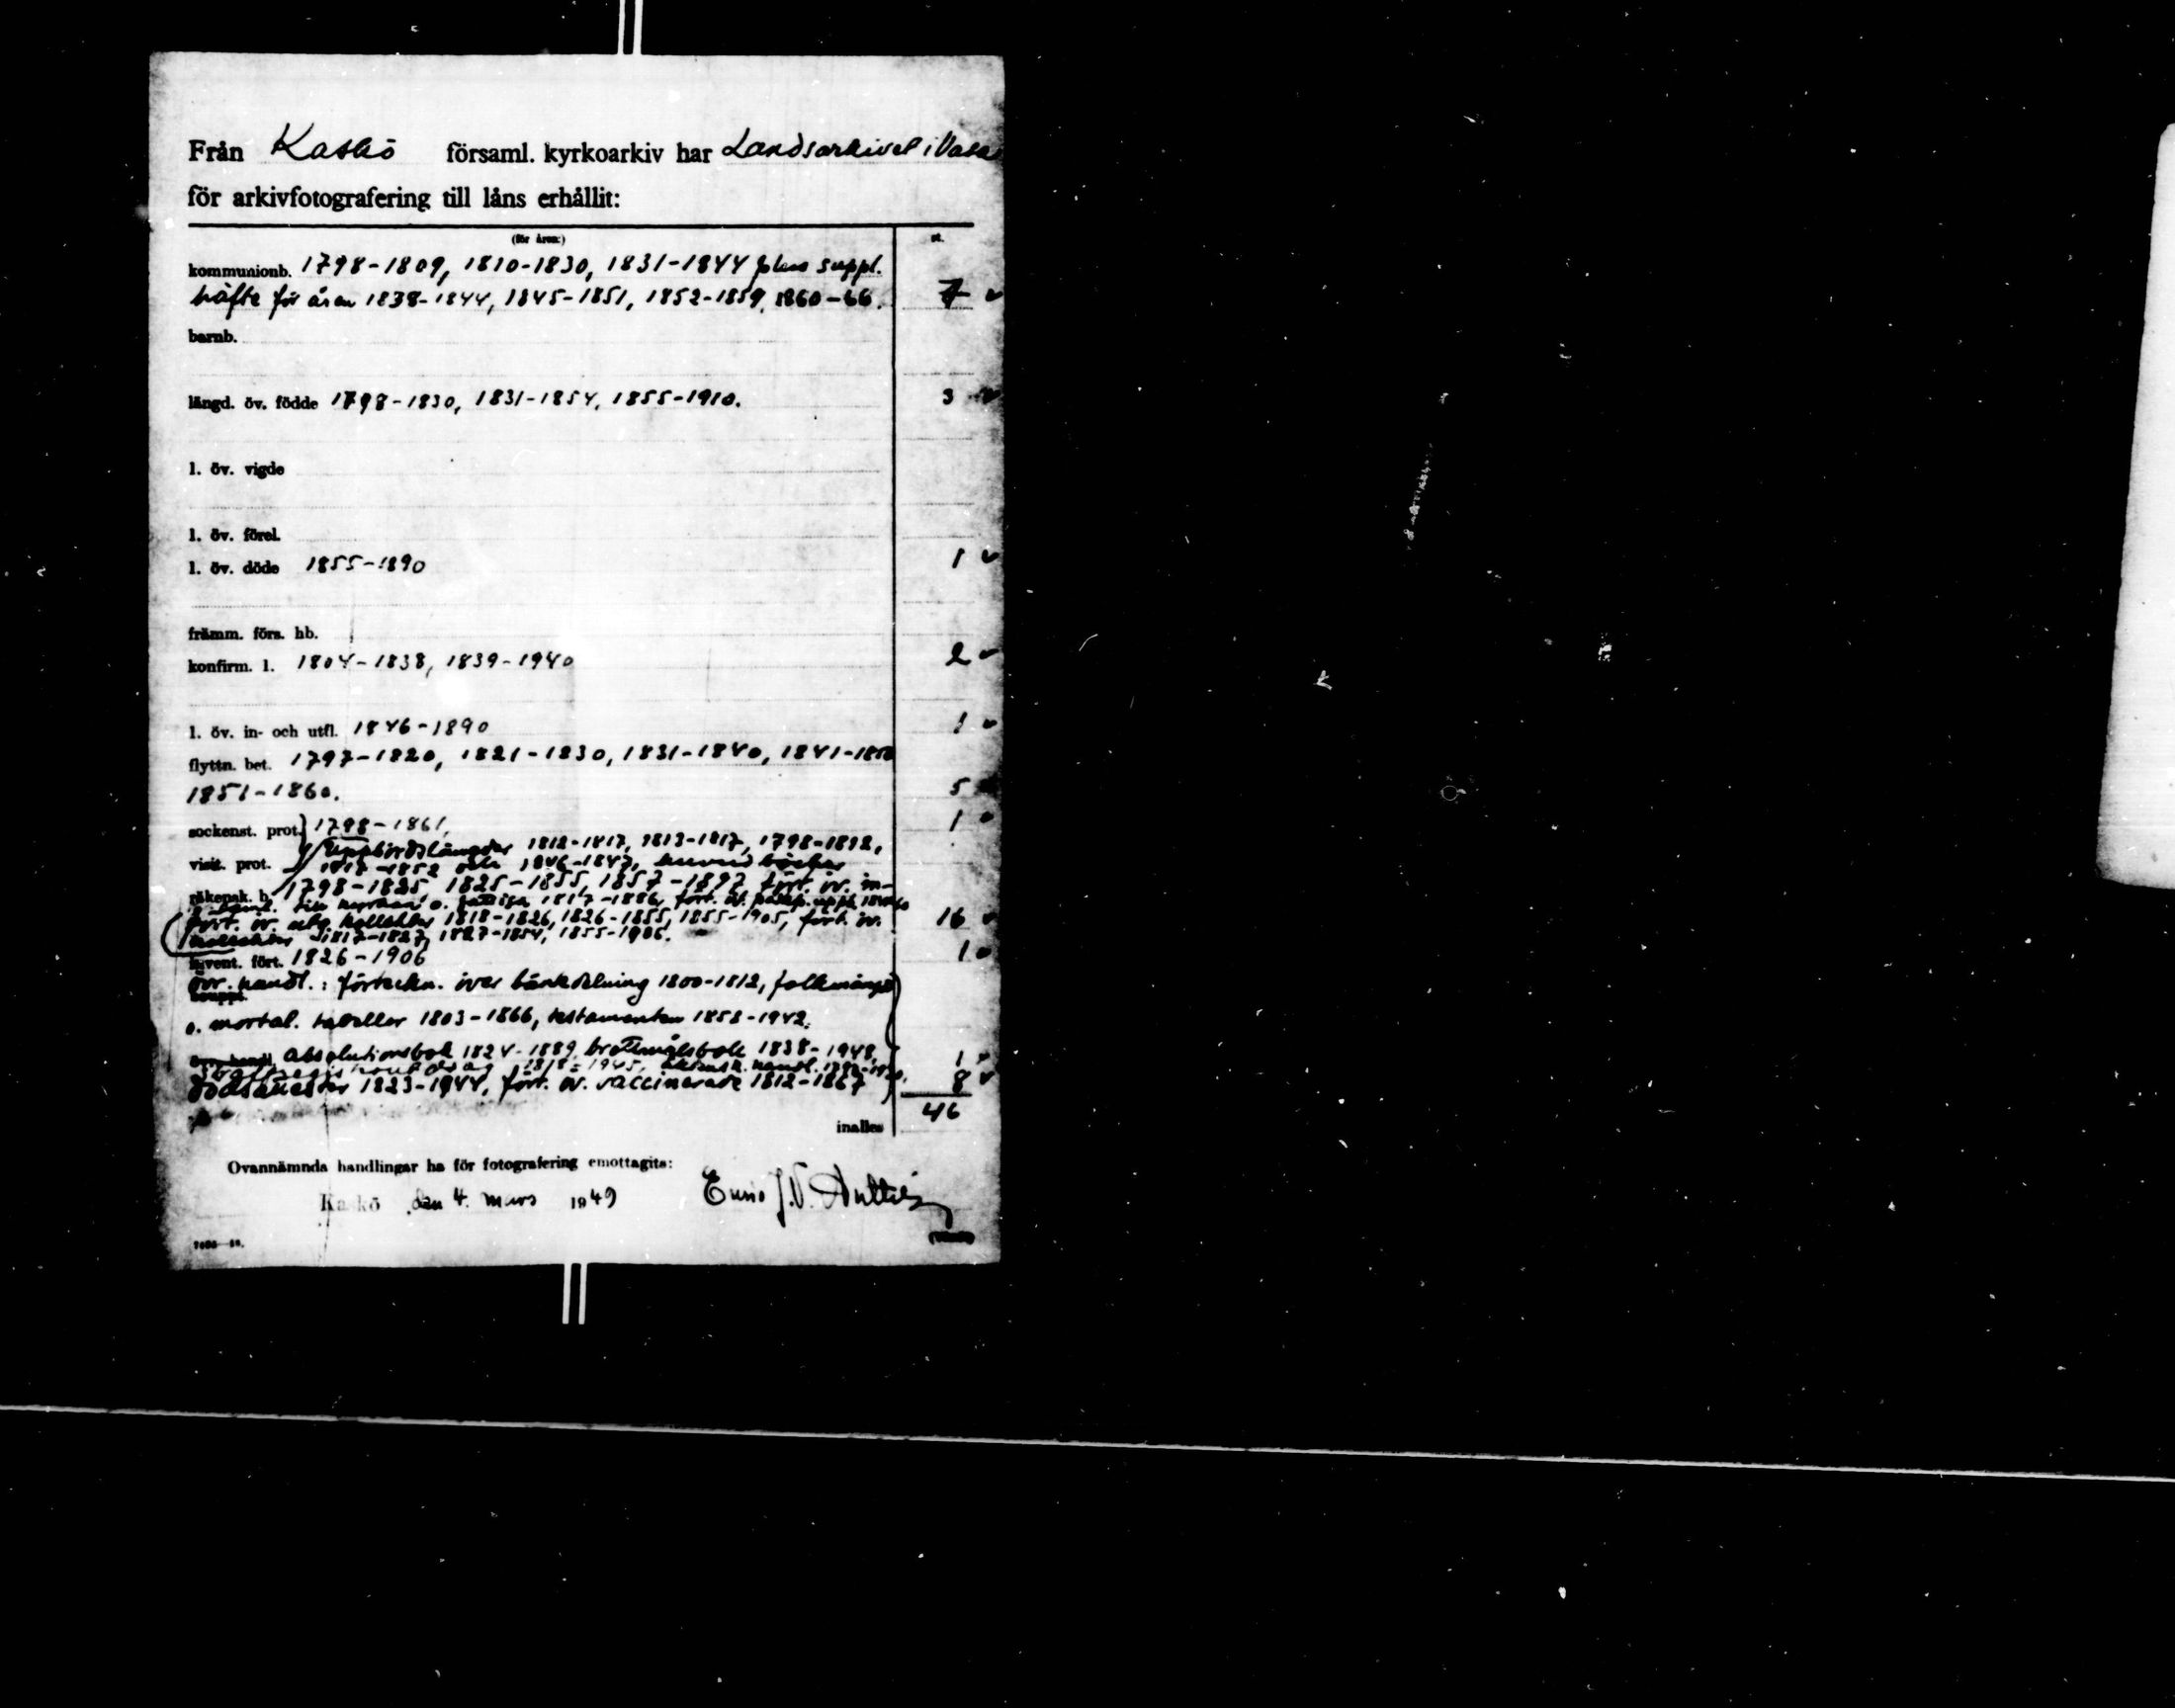 Från Kaskö församl. kyrkoarkiv har Landsarkivet i Vasa
för arkivfotografering till låns erhållit:
(för åren:) st.
kommunionb. 1798-1809, 1810-1830, 1831-1844 plus suppl.
häfte för åren 1838-1844, 1845-1851, 1852-1859, 1860-66. 7
barnb.
längd. öv. födde 1798-1830, 1831-1854, 1855-1910. 3
l. öv. vigde
l. öv. förel.
l. öv. döde 1855-1890 1
främm. förs. hb.
konfirm. l. 1804-1838, 1839-1940 2
l. öv. in- och utfl. 1846-1890 1
flyttn. bet. 1797-1820, 1821-1830, 1831-1840, 1841-1850
1851-1860. 5
sockenst. prot. 1798-1861, 1
Uppbördslängder 1812-1817, 1813-1817, 1798-1812,
visit. prot. 1817-1852 och 1846-1847,
räkensk. b. 1798-1825, 1825-1855, 1857-1892, fört. öv. in-
till kyrkan o. fattiga 1817-1886, fört. öv.
fört. öv. kollekter 1818-1826, 1826-1855, 1855-1905, fört. öv. 16
kollekter 1817-1827, 1827-1854, 1855-1906.
invent. fört. 1826-1906 1
övr. handl.: förteckn. över bänkdelning 1800-1812, folkmängd
o. mortal. tabeller 1803-1866, testamenten 1858-1942.
absolutionsbok 1824-1889, brottmålsbok 1838-1948, 1
1818-1945, handl.
dödsattester 1823-1944, fört. öv. vaccinerade 1812-1867 8
inalles 46
Ovannämnda handlingar ha för fotografering emottagits:
Kaskö den 4. mars 1949